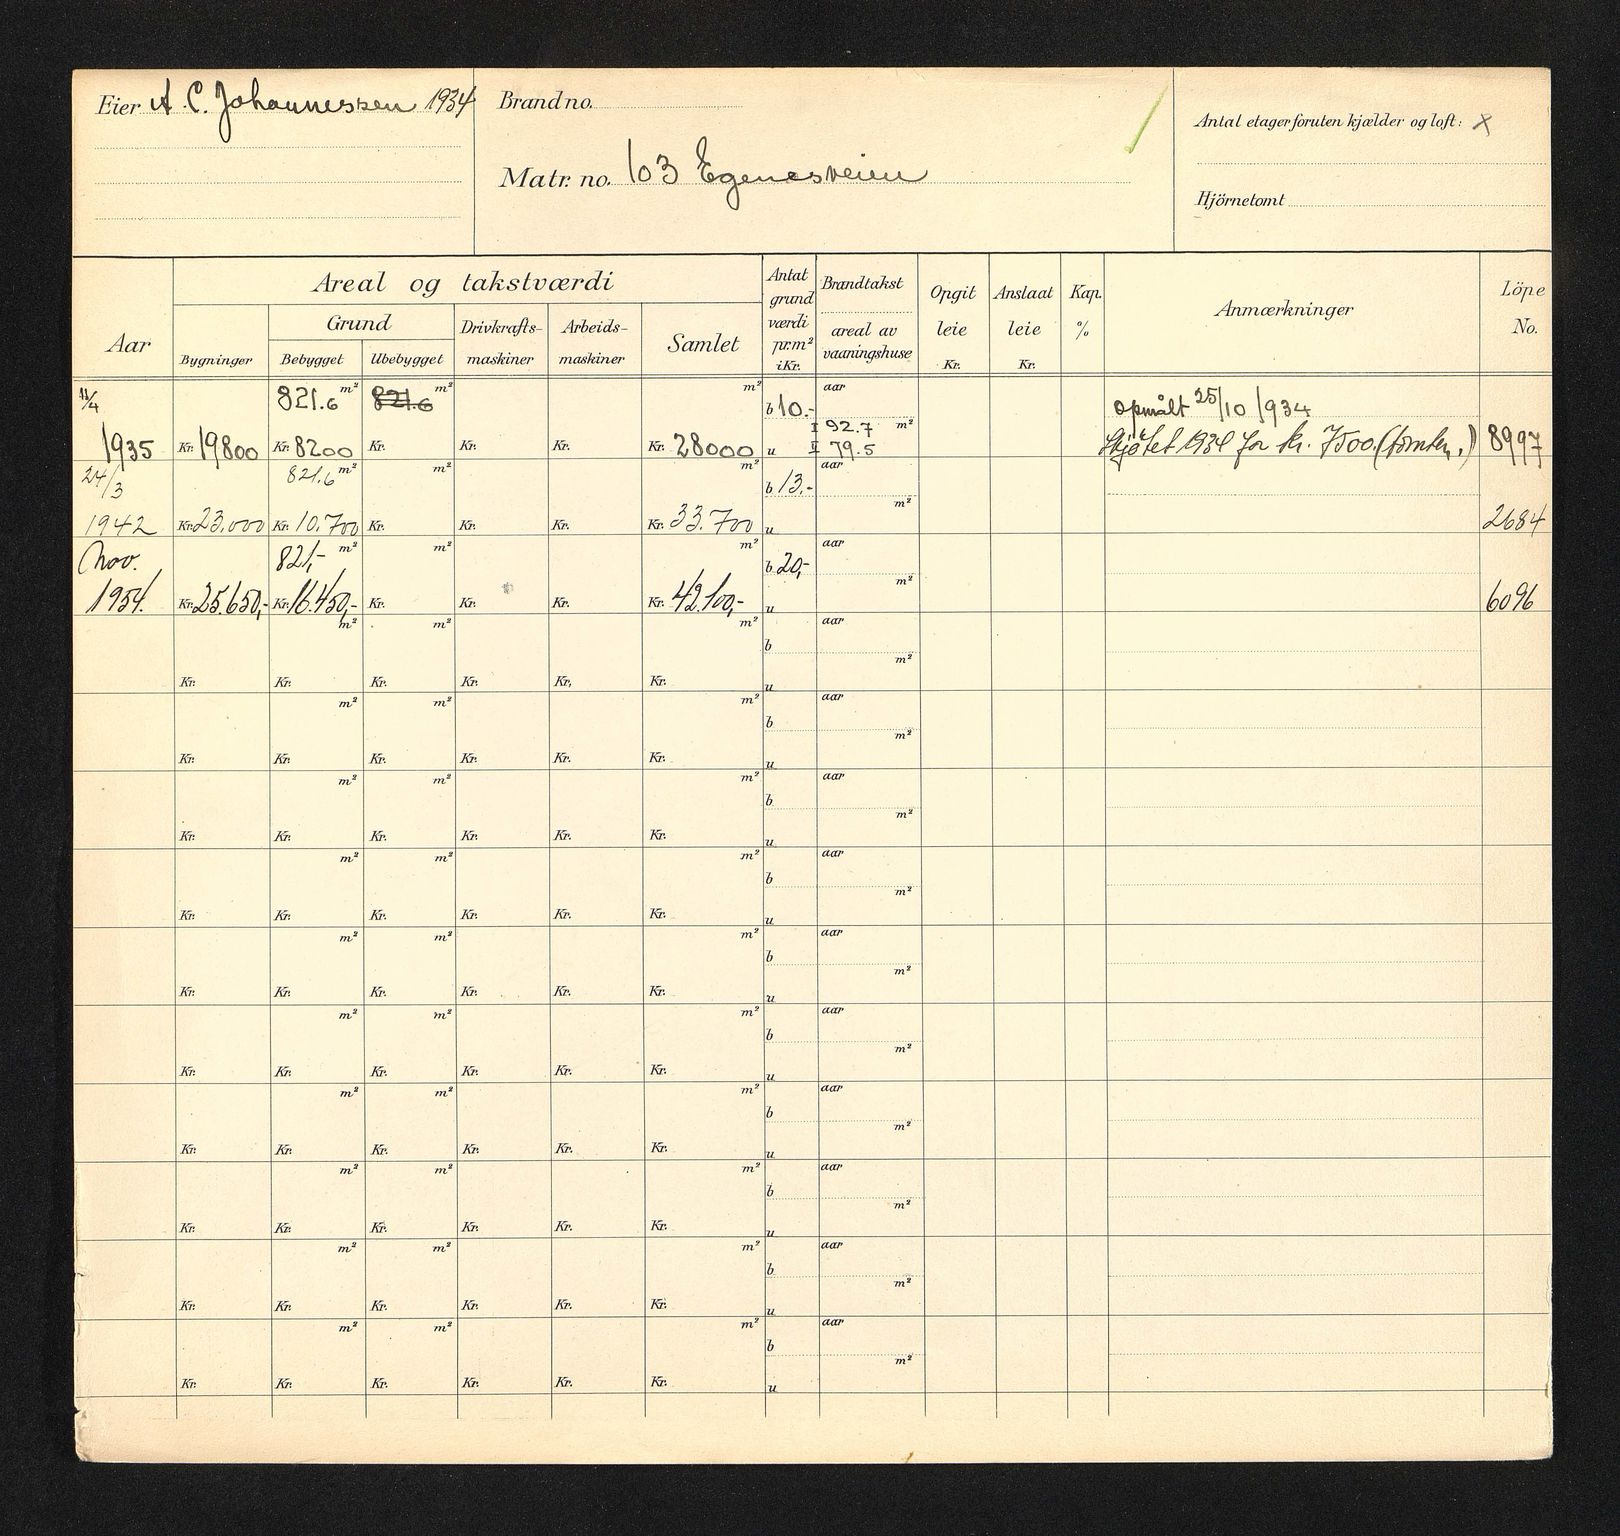 Eier A. C. Johannessen 1934
Brand no.
Matr. no. 103 Egenesveien
Antal etager foruten kjælder og loft: x
Hjörnetomt
Aar
Areal og takstværdi
Bygninger
Grund
Bebygget
Ubebygget
Drivkrafts-
maskiner
Arbeids-
maskiner
Samlet
Antat
grund
værdi
pr. m²
i Kr.
Brandtakst
areal av
vaaningshuse
Opgit
leie
Kr.
Anslaat
leie
Kr.
Kap.
%
Anmærkninger
Löpe
No.
11/4 821.6 m² 821.6 m² m² b 10.- aar Opmålt 25/10 1934
I 92.7 m²
1935 Kr. 19800 Kr. 8200 Kr. Kr. Kr. Kr. 28000 u II 79.5 Skjøtet 1934 for kr. 7500.(tomten.) 8997
24/3 821.6 m² m² m² b 13.- aar
m²
1942 Kr. 23.000 Kr. 10.700 Kr. Kr. Kr. Kr. 33.700 u 2684
Nov. 821,- m² m² m² b 20,- aar
m²
1954. Kr. 25.650,- Kr. 16.450,- Kr. Kr. Kr. Kr. 42.100,- u 6096
m² m² m² aar
b
m²
Kr. Kr. Kr. Kr. Kr. Kr. u
m² m² m² aar
b
m²
Kr. Kr. Kr. Kr. Kr. Kr. u
m² m² m² aar
b
m²
Kr. Kr. Kr. Kr. Kr. Kr. u
m² m² m² aar
b
m²
Kr. Kr. Kr. Kr. Kr. Kr. u
m² m² m² aar
b
m²
Kr. Kr. Kr. Kr. Kr. Kr. u
m² m² m² aar
b
m²
Kr. Kr. Kr. Kr. Kr. Kr. u
m² m² m² aar
b
m²
Kr. Kr. Kr. Kr. Kr. Kr. u
m² m² m² aar
b
m²
Kr. Kr. Kr. Kr. Kr. Kr. u
m² m² m² aar
b
m²
Kr. Kr. Kr. Kr. Kr. Kr. u
m² m² m² aar
b
m²
Kr. Kr. Kr. Kr. Kr. Kr. u